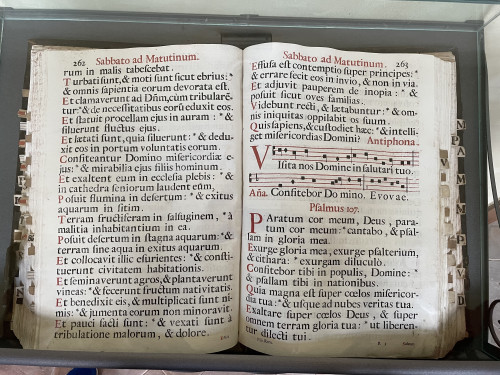 262 Sabbato ad Matutinum.
rum in malis tabescebat.
Turbati sunt, & moti sunt sicut ebrius: *
& omnis sapientia eorum devorata est.
Et clamaverunt ad Dñm, cùm tribularē-
tur: * & de necessitatibus eorum eduxit eos.
Et statuit procellam ejus in auram: * &
siluerunt fluctus ejus.
Et lætati sunt, quia siluerunt: * & dedu-
xit eos in portum voluntatis eorum.
Confiteantur Domino misericordiæ e-
jus: * & mirabilia ejus filiis hominum.
Et exaltent eum in ecclesia plebis: * &
in cathedra seniorum laudent eum.
Posuit flumina in desertum: * & exitus
aquarum in sitim.
Terram fructiferam in salsuginem, * à
malitia inhabitantium in ea.
Posuit desertum in stagna aquarum: * &
terram sine aqua in exitus aquarum.
Et collocavit illic esurientes: * & consti-
tuerunt civitatem habitationis.
Et seminaverunt agros, & plantaverunt
vineas: * & fecerunt fructum nativitatis.
Et benedixit eis, & multiplicati sunt ni-
mis: * & jumenta eorum non minoravit.
Et pauci facti sunt: * & vexati sunt à
tribulatione malorum, & dolore.
Sabbato ad Matutinum. 263
Effusa est contemptio super principes: *
& errare fecit eos in invio, & non in via.
Et adjuvit pauperem de inopia: * &
posuit sicut oves familias.
Videbunt recti, & lætabuntur: * & om-
nis iniquitas oppilabit os suum.
Quis sapiens, & custodiet hæc: * & intelli-
get misericordias Domini? Antiphona.
Visita nos Domine in salutari tuo.
Aña. Confitebor Domino. Evovae.
Psalmus 107.
Paratum cor meum, Deus, para-
tum cor meum: * cantabo, & psal-
lam in gloria mea.
Exurge gloria mea, exurge psalterium,
& cithara: * exurgam diluculò.
Confitebor tibi in populis, Domine: *
& psallam tibi in nationibus.
Quia magna est super cœlos misericor-
dia tua: * & usque ad nubes veritas tua.
Exaltare super cœlos Deus, & super
omnem terram gloria tua: * ut liberen-
tur dilecti tui.